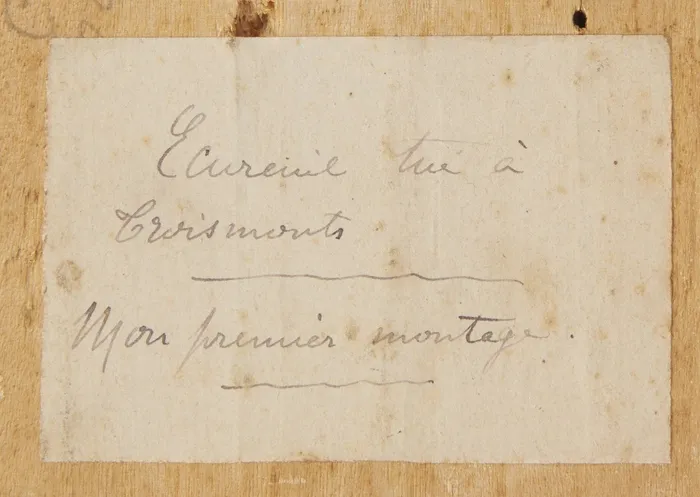 Ecureuil tué à
Troismonts
Mon premier montage.